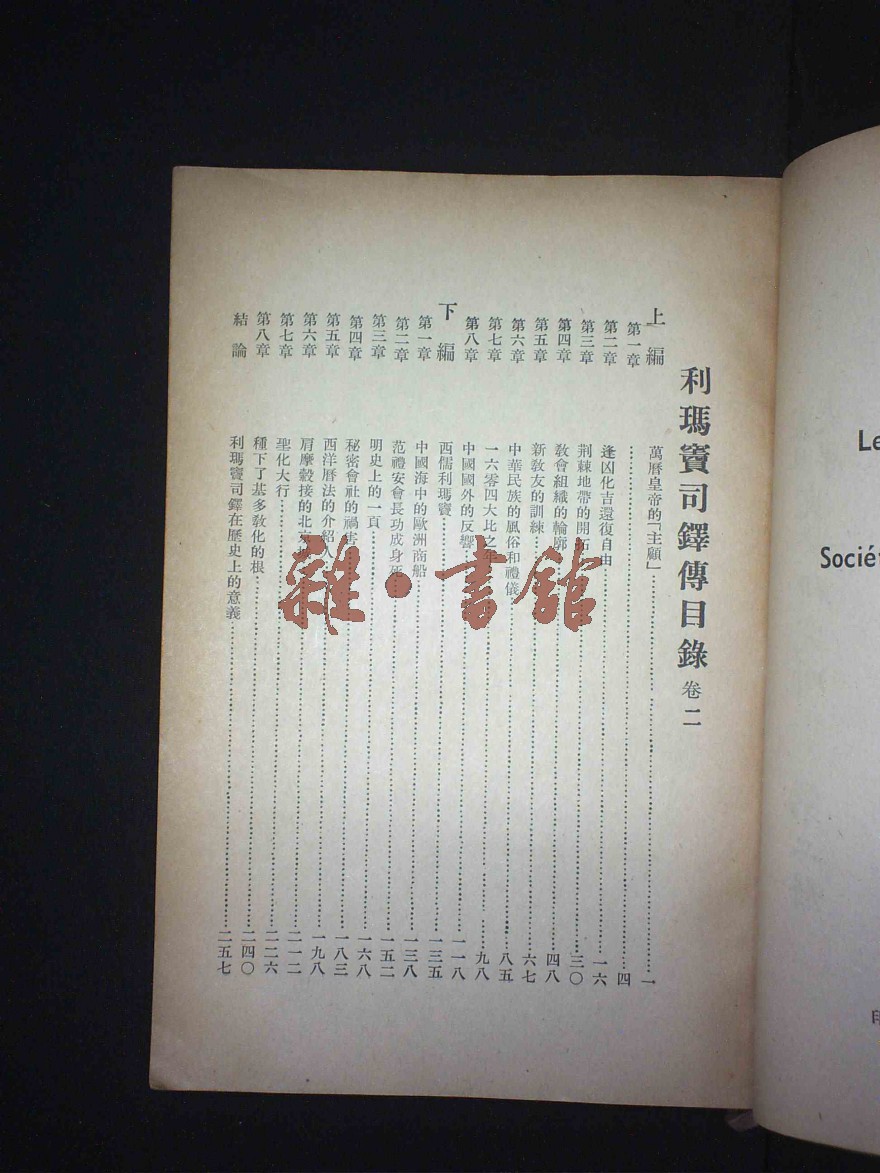 利瑪竇司鐸傳目錄 卷二
上編 萬曆皇帝的「主顧」 一
第一章 四
第二章 逢凶化吉還復自由 一六
第三章 荆棘地帶的開 三〇
第四章 教會組織的輪廓 四八
第五章 新教友的訓練 六七
第六章 中華民族的風俗和禮儀 八五
第七章 一六零四大比之年 九八
第八章 中國國外的反響 一一八
下編 西儒利瑪竇 一三五
第一章 中國海中的歐洲商船 一三八
第二章 范禮安會長功成身死 一五二
第三章 明史上的一頁 一六八
第四章 秘密會社的禍害 一八三
第五章 西洋曆法的介紹人 一九八
第六章 肩摩轂接的北京 二一二
第七章 聖化大行 二二六
第八章 種下了基多教化的根 二四〇
結論 利瑪竇司鐸在歷史上的意義 二五七
雜·書館
Le
Socié
印